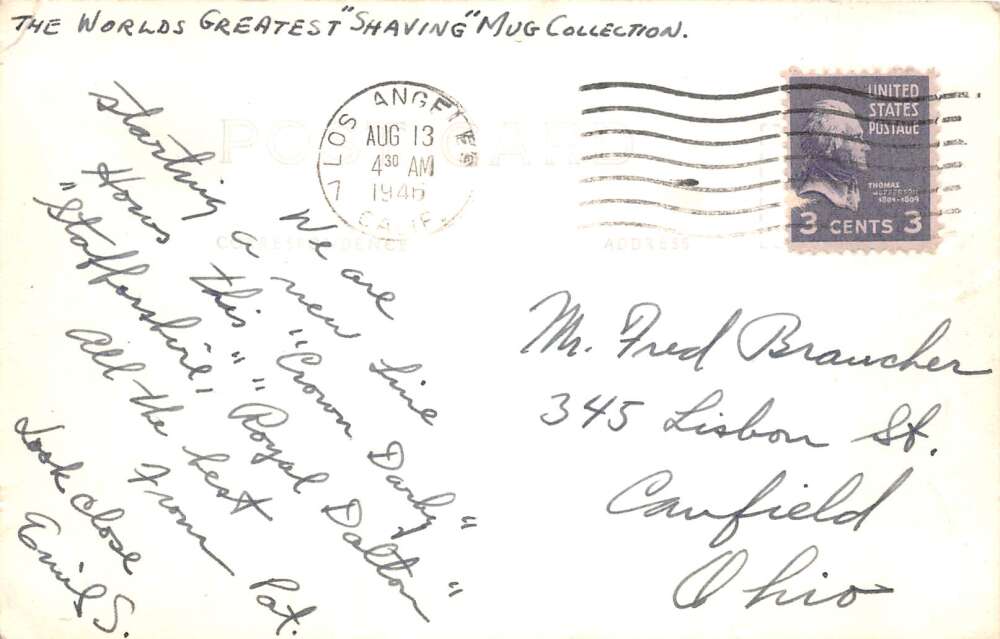 THE WORLDS GREATEST "SHAVING" MUG COLLECTION.
POST CARD
LOS ANGELES
AUG 13
4 30 AM
1946
7 CALIF.
UNITED
STATES
POSTAGE
THOMAS
JEFFERSON
1801-1809
3 CENTS 3
CORRESPONDENCE
ADDRESS
We are
starting a new line
Hows this "Crown Darby"
"Staffershire," "Royal Dalton"
All the best
From Pat.
Look close
Emil S.
Mr. Fred Braucher
345 Lisbon St.
Canfield
Ohio